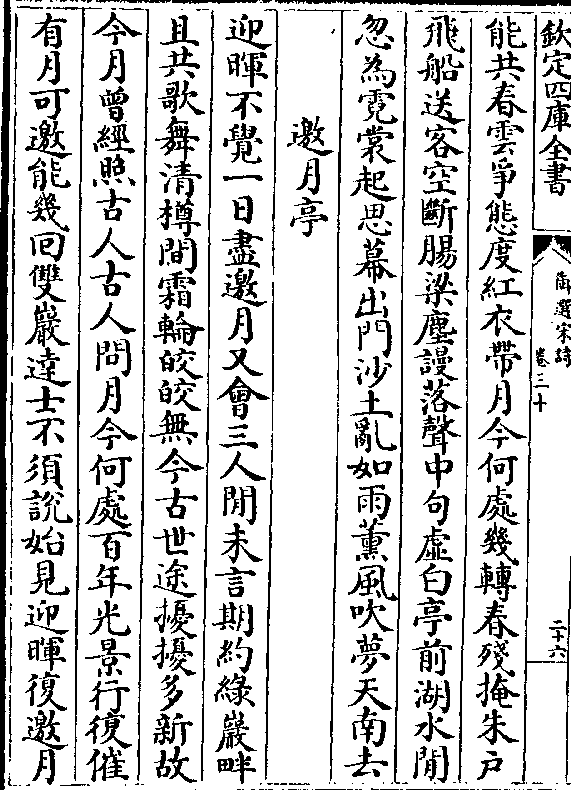 欽定四庫全書
御選宋詩
卷三十
二十六
能共春雲爭態度紅衣帶月今何處幾轉春殘掩朱戸
飛船送客空斷腸梁塵謾落聲中句虛白亭前湖水閒
忽為霓裳起思幕出門沙土亂如雨薰風吹夢天南去
邀月亭
迎暉不覺一日盡邀月又會三人閒未言期約綠巖畔
且共歌舞清樽間霜輪皎皎無今古世途擾擾多新故
今月曾經照古人古人問月今何處百年光景行復催
有月可邀能幾回雙巖達士不須說始見迎暉復邀月